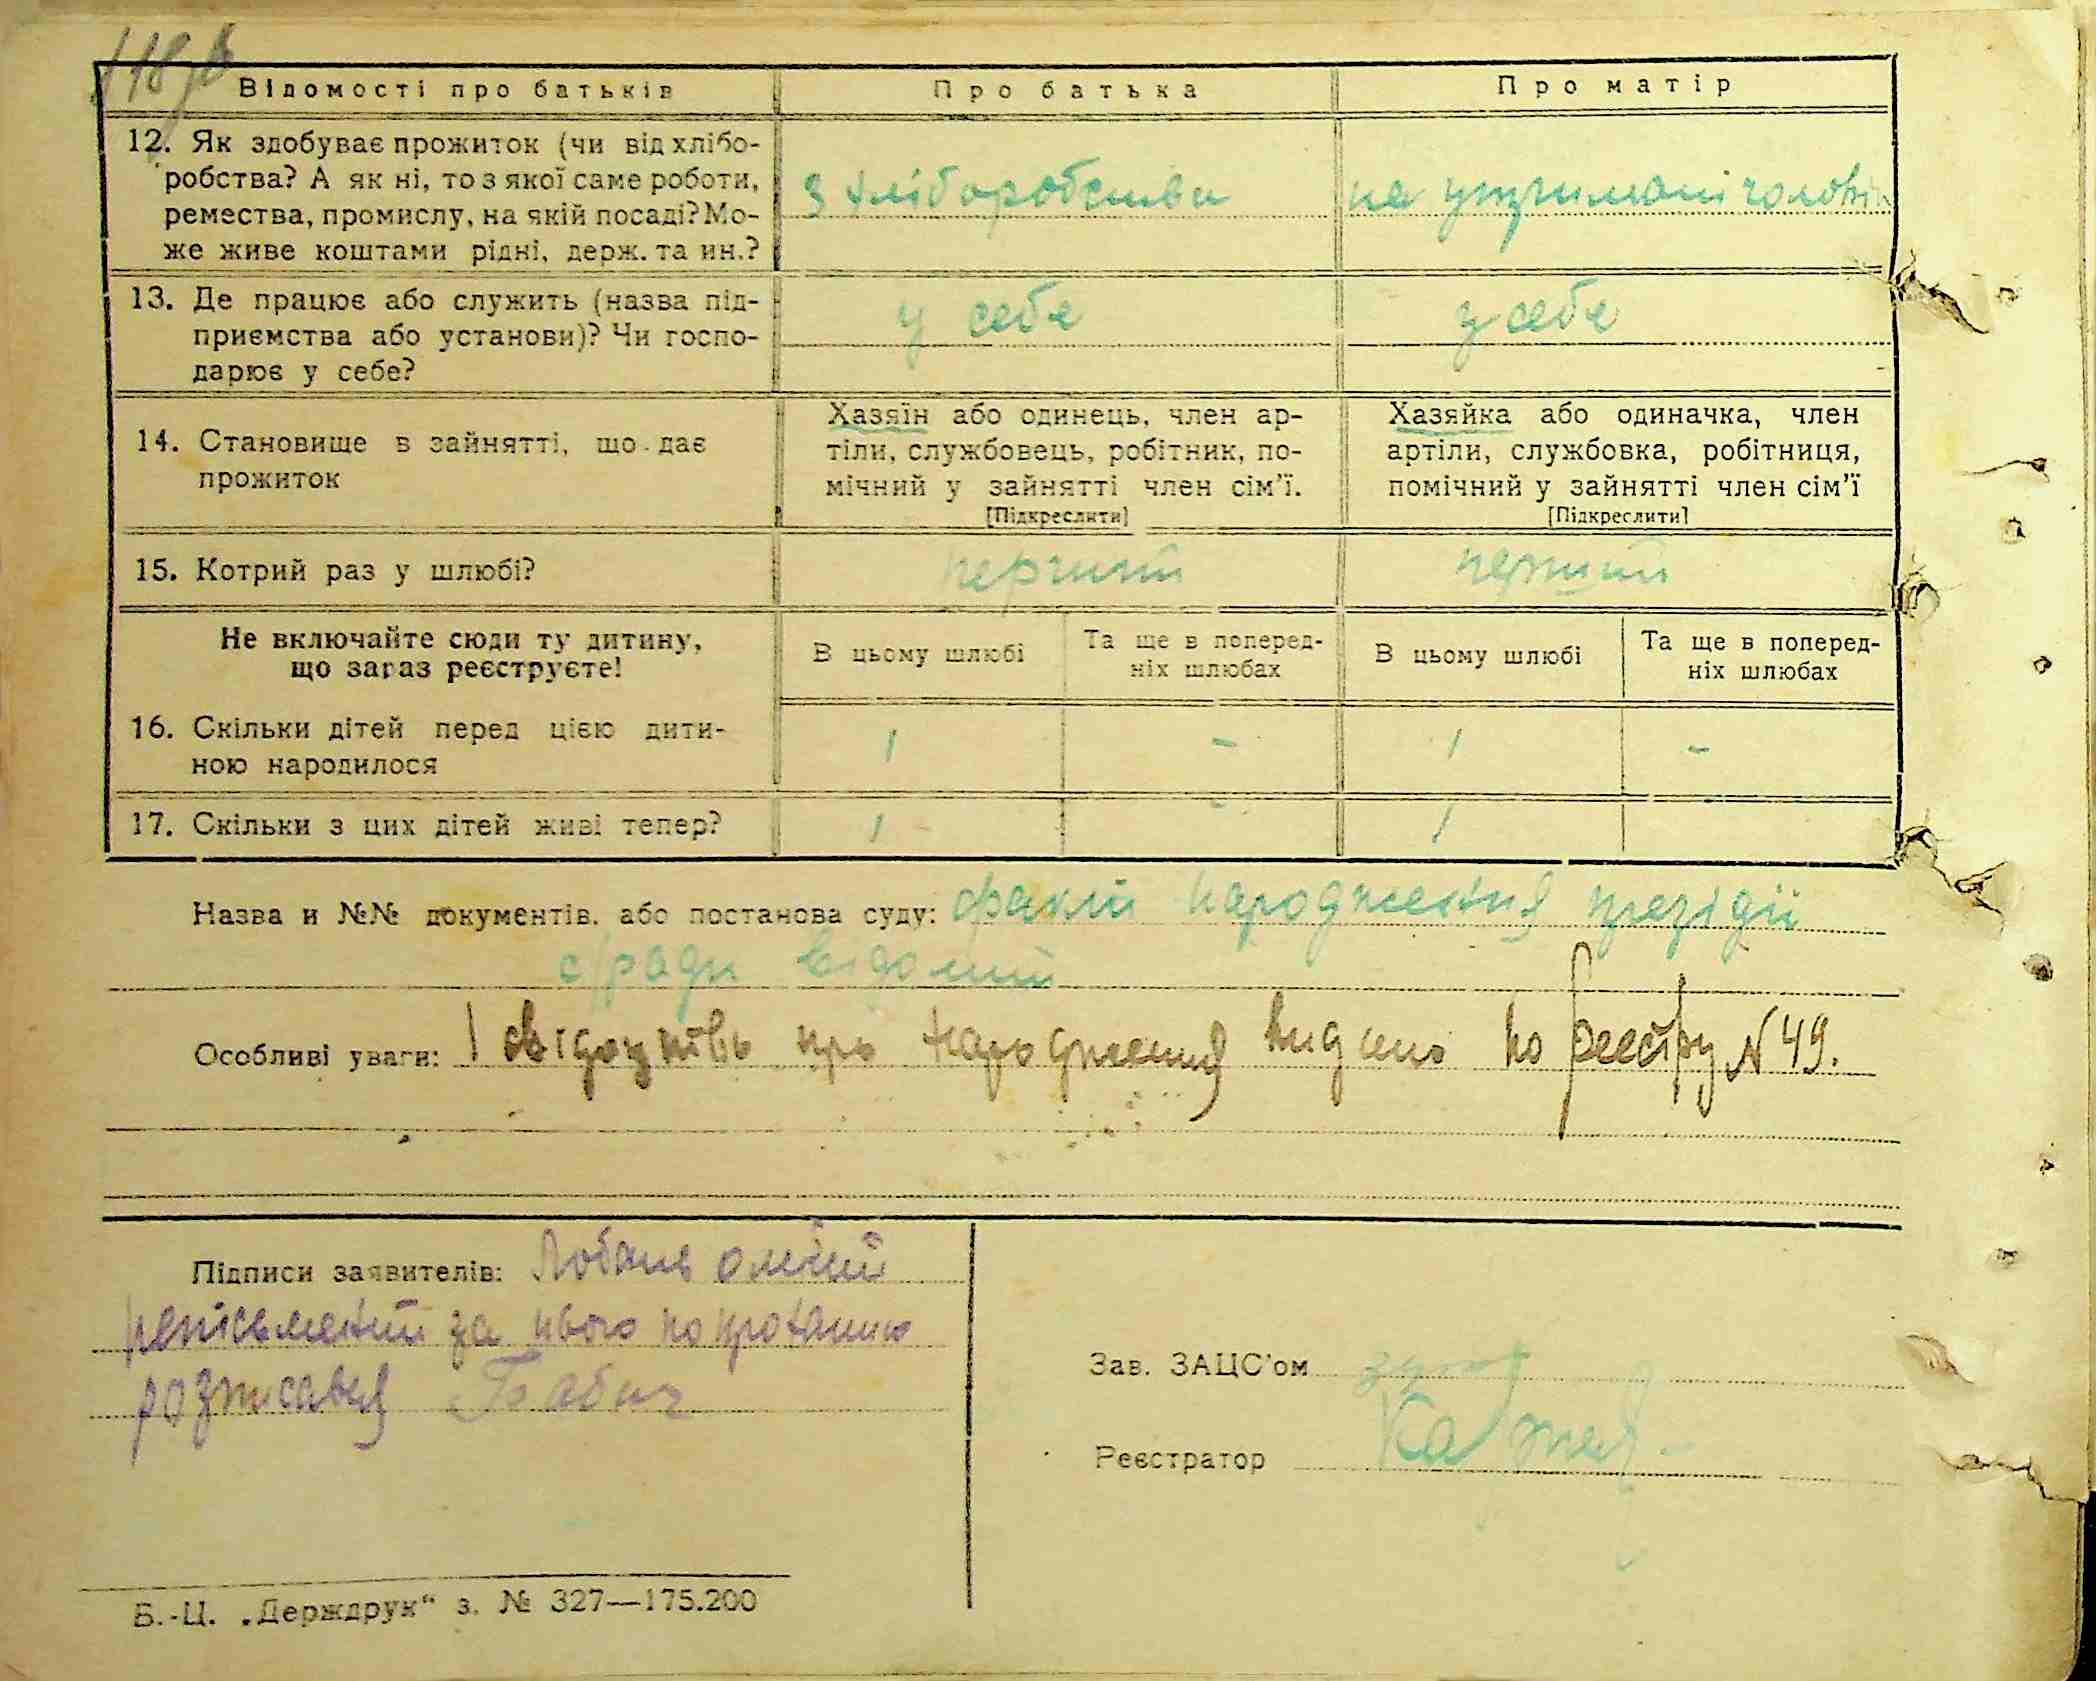 118
Відомості про батьків
Про батька
Про матір
12. Як здобуває прожиток (чи від хлібо-
робства? А як ні, то з якої саме роботи,
ремества, промислу, на якій посаді? Мо-
же живе коштами рідні, держ. та ин.?
з хліборобства
на утримані чоловік
13. Де працює або служить (назва під-
приємства або установи)? Чи госпо-
дарює у себе?
у себе
у себе
14. Становище в зайнятті, що дає
прожиток
Хазяїн або одинець, член ар-
тіли, службовець, робітник, по-
мічний у зайнятті член сім'ї.
[Підкреслити]
Хазяйка або одиначка, член
артіли, службовка, робітниця,
помічний у зайнятті член сім'ї
[Підкреслити]
15. Котрий раз у шлюбі?
перший
перший
Не включайте сюди ту дитину,
що зараз реєструєте!
В цьому шлюбі
Та ще в поперед-
ніх шлюбах
В цьому шлюбі
Та ще в поперед-
ніх шлюбах
16. Скільки дітей перед цією дити-
ною народилося
1 - 1 -
17. Скільки з цих дітей живі тепер?
1 - 1
Назва и №№ документів. або постанова суду: факт народження презідії
с/ради відомий
Особливі уваги: 1 свідоцтво про народження видано по реєстру N 49.
Підписи заявителів: Лобань
неписьмений за нього по проханню
розписався Бабич
Зав. ЗАЦС'ом
Реєстратор
Б.-Ц. „Держдрук“ з. № 327—175.200